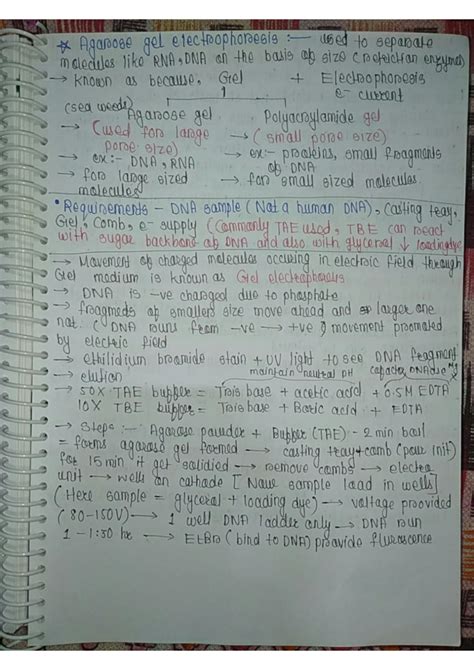 * Agarose gel electrophoresis :— used to separate
molecules like RNA, DNA on the basis of size (restriction enzymes)
→ known as because, Gel + Electrophoresis
e- current
(sea weeds)
Agarose gel Polyacrylamide gel
→ (used for large → (small pore size)
pore size)
→ ex:- DNA, RNA → ex:- proteins, small fragments
of DNA
→ for large sized → for small sized molecules
molecules
• Requirements – DNA sample (Not a human DNA), Casting tray,
Gel, Comb, e- supply (Commonly TAE used, TBE can react
with sugar backbone of DNA and also with glycerol ↓ loading dye
→ Movement of charged molecules occuring in electric field through
Gel medium is known as Gel electrophoresis
→ DNA is -ve charged due to phosphate
→ fragmets of smaller size move ahead and larger one
not. ( DNA runs from -ve → +ve } movement promoted
by electric field
→ ethilidium bromide stain + UV light to see DNA fragment
→ elution maintain neutral pH
→ 50X TAE buffer = Tris base + acetic acid + 0.5M EDTA
10X TBE buffer = Tris base + Boric acid + EDTA
→ Steps :- Agarose powder + Buffer (TAE) - 2 min boil
= forms agarose gel formed → casting tray + comb (pour init)
for 15 min it get solidied → remove combs → electro
unit → wells on cathode [ Now sample load in wells]
( Here sample = glycerol + loading dye) → voltage provided
(80-150V) → 1 well DNA ladder only → DNA run
1 - 1:30 hr → EtBro ( bind to DNA) provide flurosence